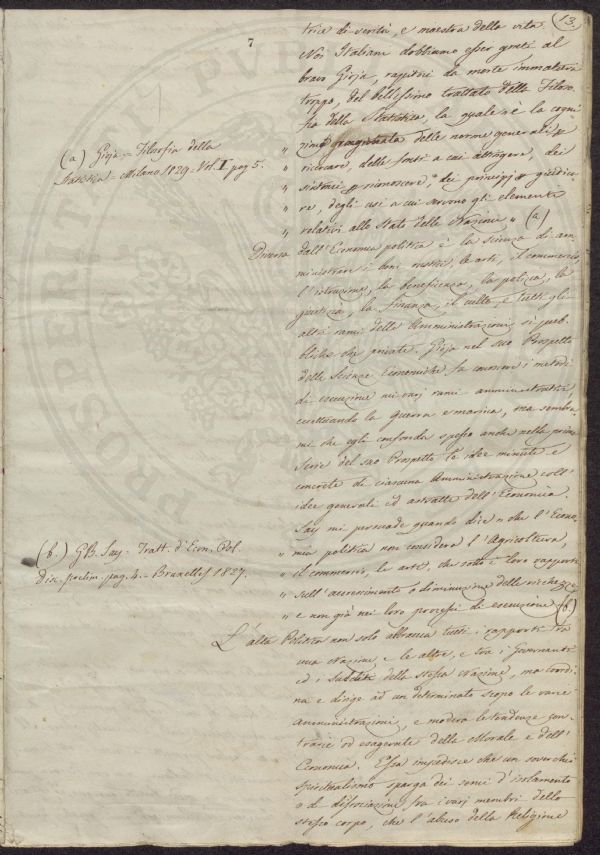 13.
7
trice di verità, e maestra della vita.
Noi Italiani dobbiamo esser grati al
bravo Gioja, rapitoci da morte immatura
troppo, del bellissimo trattato della Filoso-
fia della Statistica, la quale è la cogni
" zione delle norme generali p
" ricercare, delle fonti a cui attingere, dei
" sintomi p riconoscere, dei principj p giudica
" re, degli usi a cui servono gli elementi
" relativi allo Stato delle Nazioni " (a)
(a) Gioja = Filosofia della
Statistica = Milano 1829 = Vol. I pag 5.
Diversa dall'Economia politica è la scienza di am
ministrare i boni rustici, le arti, il commercio,
l'istruzione, la beneficenza, la polizia, la
giustizia, la finanza, il culto, e tutti gli
altri rami della Amministrazione sì pub-
blica che privata. Gioja nel suo Prospetto
delle Scienze Economiche fa conoscere i metodi
di esecuzione nei vari rami amministrativi
eccettuando la guerra e marina, ma sembra-
mi che egli confonda spesso anche nella prima
Serie del suo Prospetto le idee minute e
concrete di ciascuna Amministrazione coll'
idee generali ed astratte dell'Economia.
Say mi persuade quando dice " che l'Econo
" mia politica non considera l'Agricoltura,
" il commercio, le arti, che sotto il loro rapporto
" sull'accrescimento o diminuzione delle ricchezze
" e non già nei loro processi di esecuzione (b)
(b) GB. Say = Tratt. d'Econ. Pol.
Disc. prelim. pag. 4. - Bruxelles 1827.
L'alta Politica non solo abbraccia tutti i rapporti tra
una Nazione e le altre, e tra i Governanti
ed i sudditi della stessa Nazione, ma coordi
na e dirige ad un determinato scopo le varie
amministrazioni, e modera le tendenze con-
trarie od esagerate della Morale e dell'
Economia. Essa impedisce che un soverchio
spiritualismo sparga dei semi d'isolamento
o di dissociazione fra i vari membri dello
stesso corpo, che l'abuso della Religione